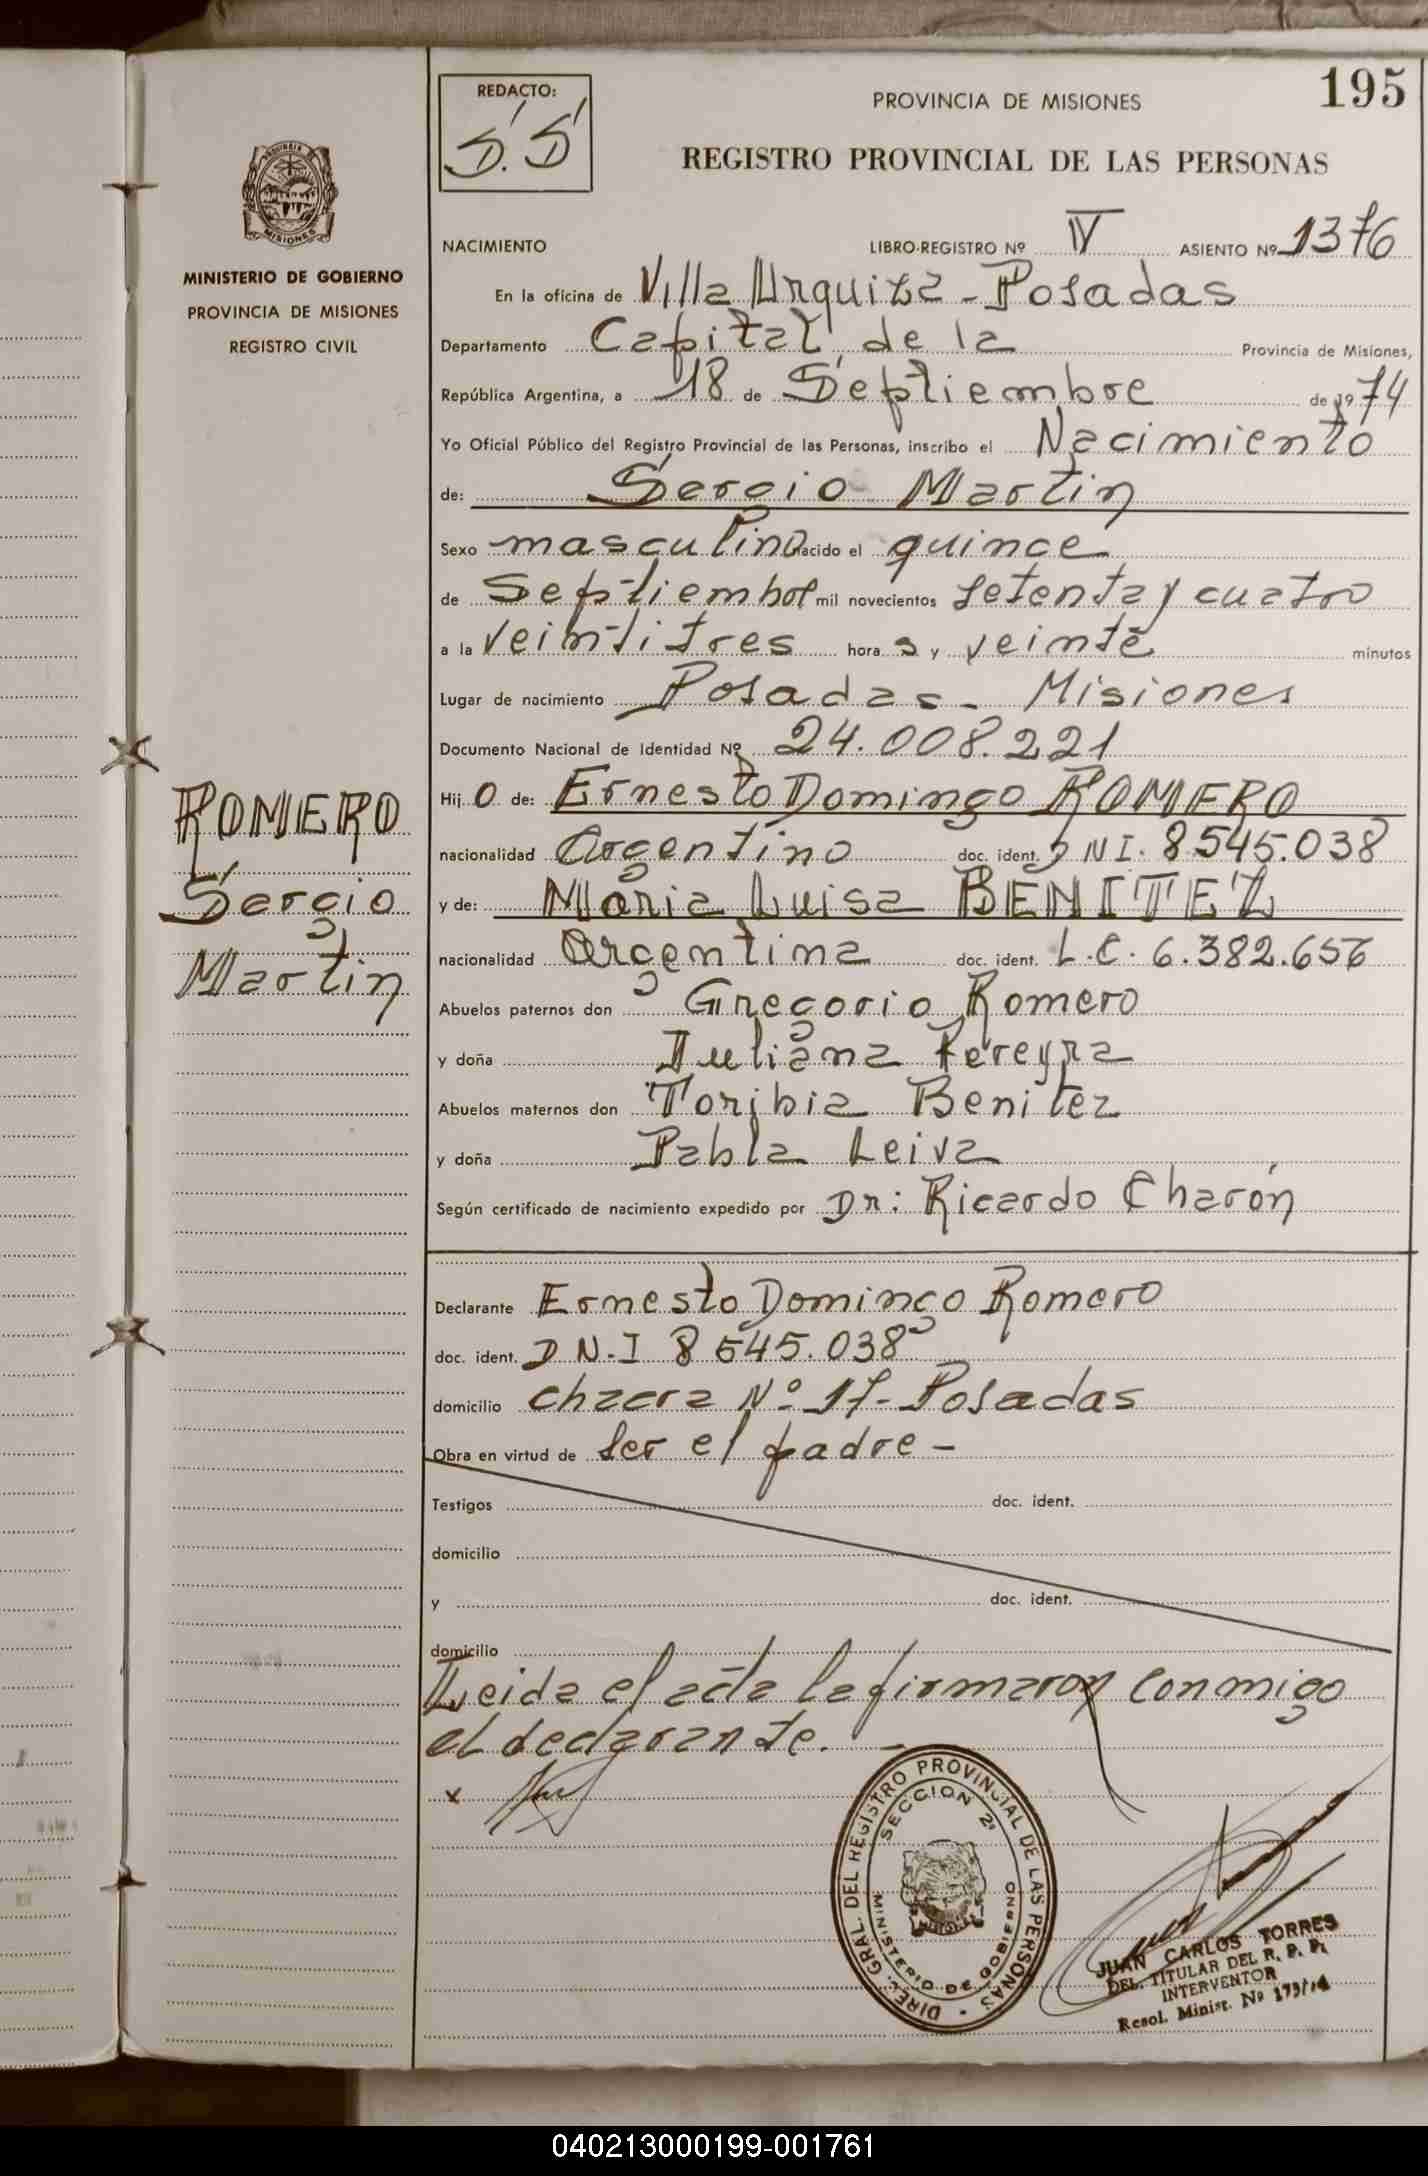 195
REDACTO:
S. S
PROVINCIA DE MISIONES
REGISTRO PROVINCIAL DE LAS PERSONAS
PROVINCIA DE
MISIONES
MINISTERIO DE GOBIERNO
PROVINCIA DE MISIONES
REGISTRO CIVIL
NACIMIENTO LIBRO-REGISTRO Nº IV ASIENTO Nº 1376
En la oficina de Villa Urquiza - Posadas
Departamento Capital de la Provincia de Misiones,
República Argentina, a 18 de Septiembre de 1974
Yo Oficial Público del Registro Provincial de las Personas, inscribo el Nacimiento
de: Sergio Martin
Sexo masculino nacido el quince
de Septiembre mil novecientos setenta y cuatro
a la veintitres hora s y veinte minutos
Lugar de nacimiento Posadas - Misiones
Documento Nacional de Identidad Nº 24.008.221
Hij o de: Ernesto Domingo ROMERO
nacionalidad Argentino doc. ident. D N I. 8.545.038
y de: Maria Luisa BENITEZ
nacionalidad Argentina doc. ident. L.C. 6.382.656
Abuelos paternos don Gregorio Romero
y doña Juliana Pereyra
Abuelos maternos don Toribia Benitez
y doña Pabla Leiva
Según certificado de nacimiento expedido por Dr: Ricardo Charón
ROMERO
Sergio
Martin
Declarante Ernesto Domingo Romero
doc. ident. D N.I 8 545.038
domicilio chacra Nº 17 - Posadas
Obra en virtud de ser el padre -
Testigos doc. ident.
domicilio
y doc. ident.
domicilio
Leida el acta la firmaron conmigo
el declarante. -
x
DIREC. GRAL. DEL REGISTRO PROVINCIAL DE LAS PERSONAS
SECCION 2ª
MINISTERIO DE GOBIERNO
JUAN CARLOS TORRES
DEL. TITULAR DEL R. P. P.
INTERVENTOR
Resol. Minist. Nº 173/74
040213000199-001761